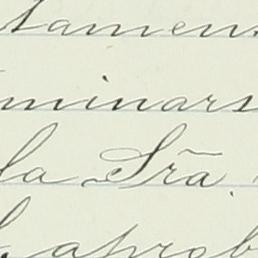 tamen
minars
la Srã.
aprob